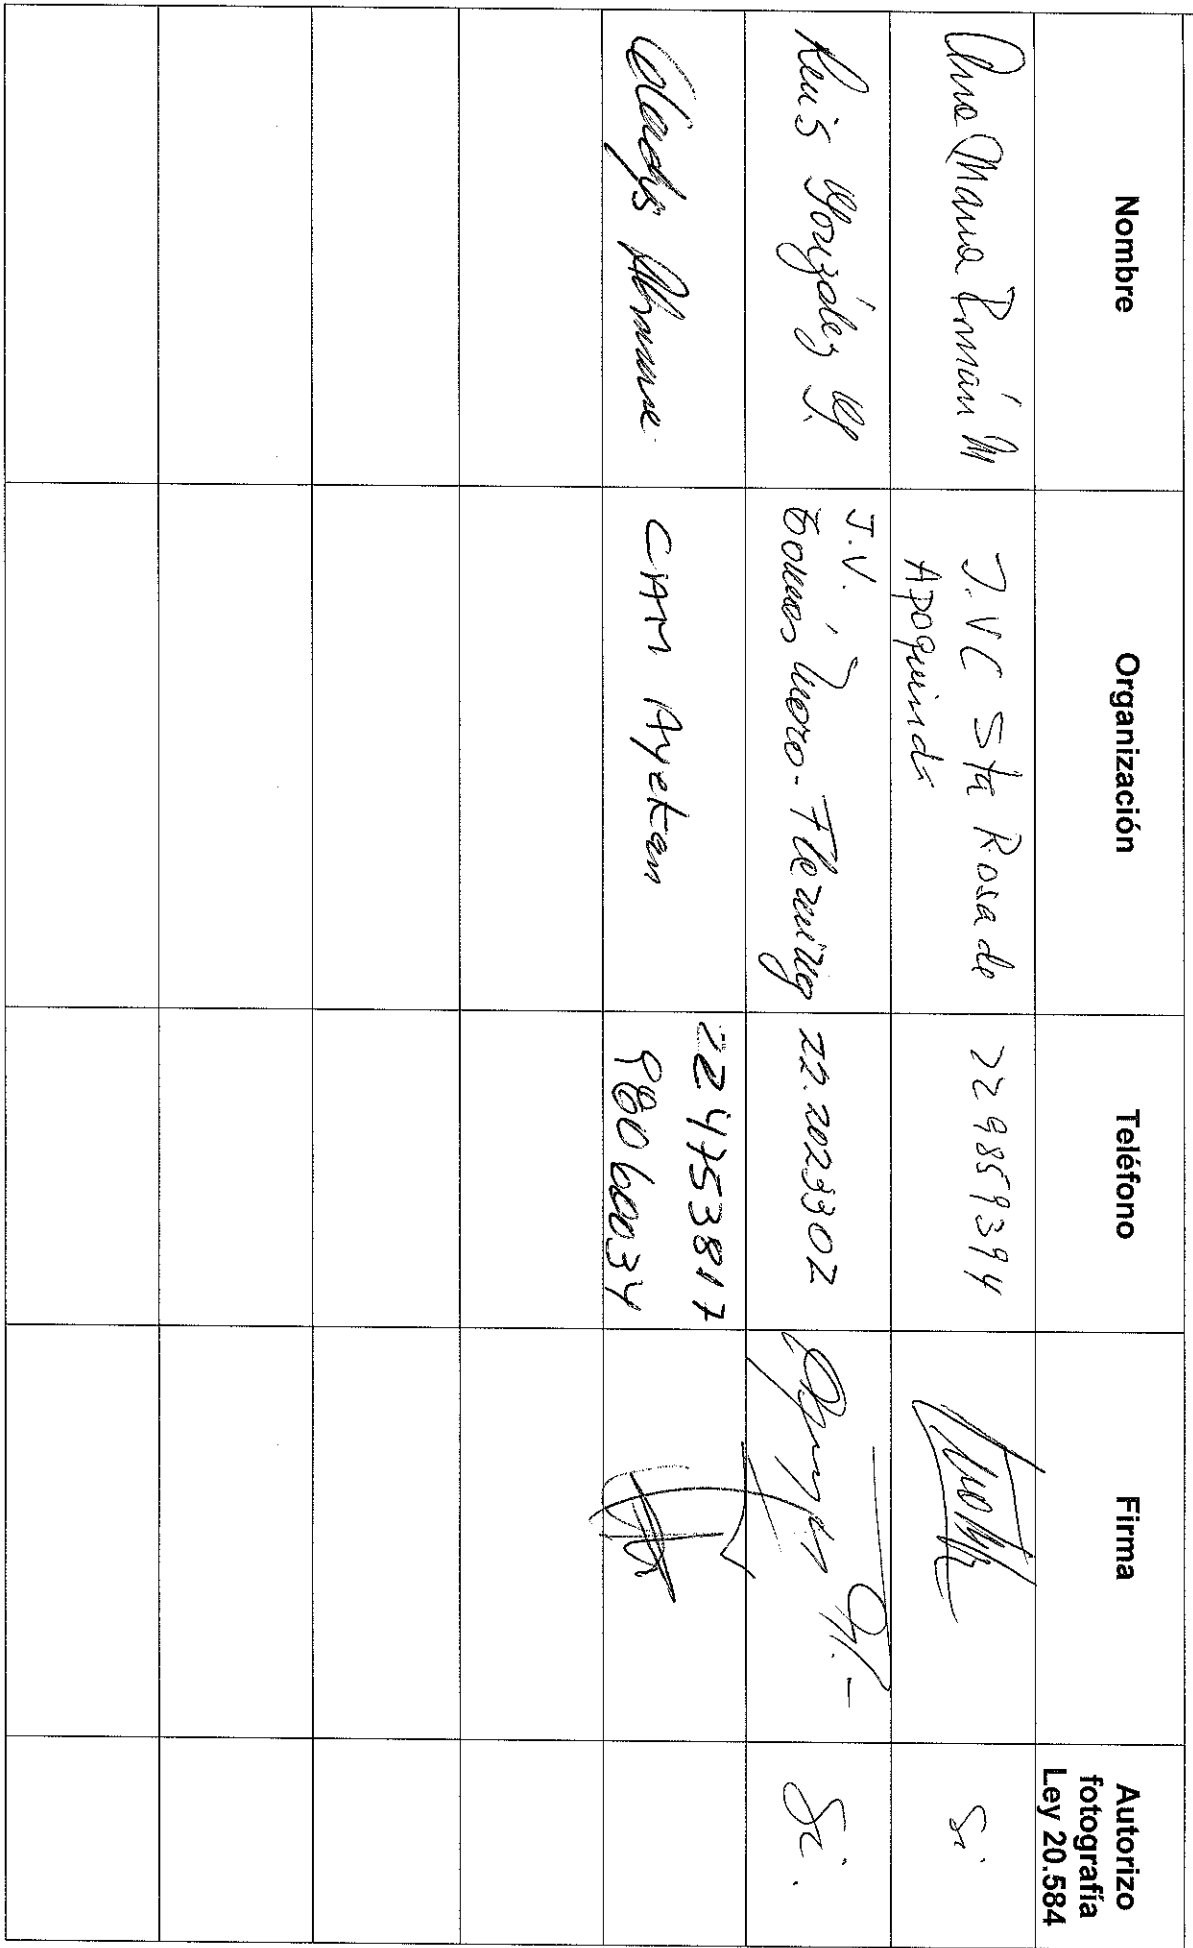 Nombre
Organización
Teléfono
Firma
Autorizo
fotografía
Ley 20.584
Ana María Román M
J.VC Sta Rosa de
Apoquindo
229859394
Si
Luis González G.
J.V.
Tomás Moro-Fleming
22.2023302
Si.
Gladys
CAM Ayekan
224753817
98060034